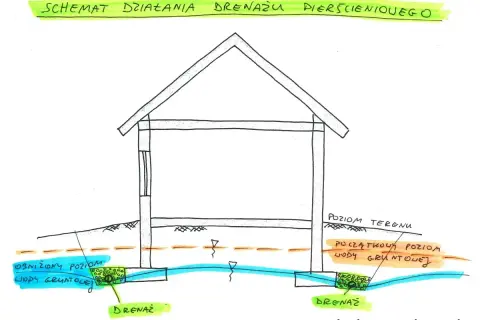 SCHEMAT DZIAŁANIA DRENAŻU PIERŚCIENIOWEGO
POZIOM TERENU
POCZĄTKOWY POZIOM
WODY GRUNTOWEJ
OBNIŻONY POZIOM
WODY GRUNTOWEJ
DRENAŻ
DRENAŻ